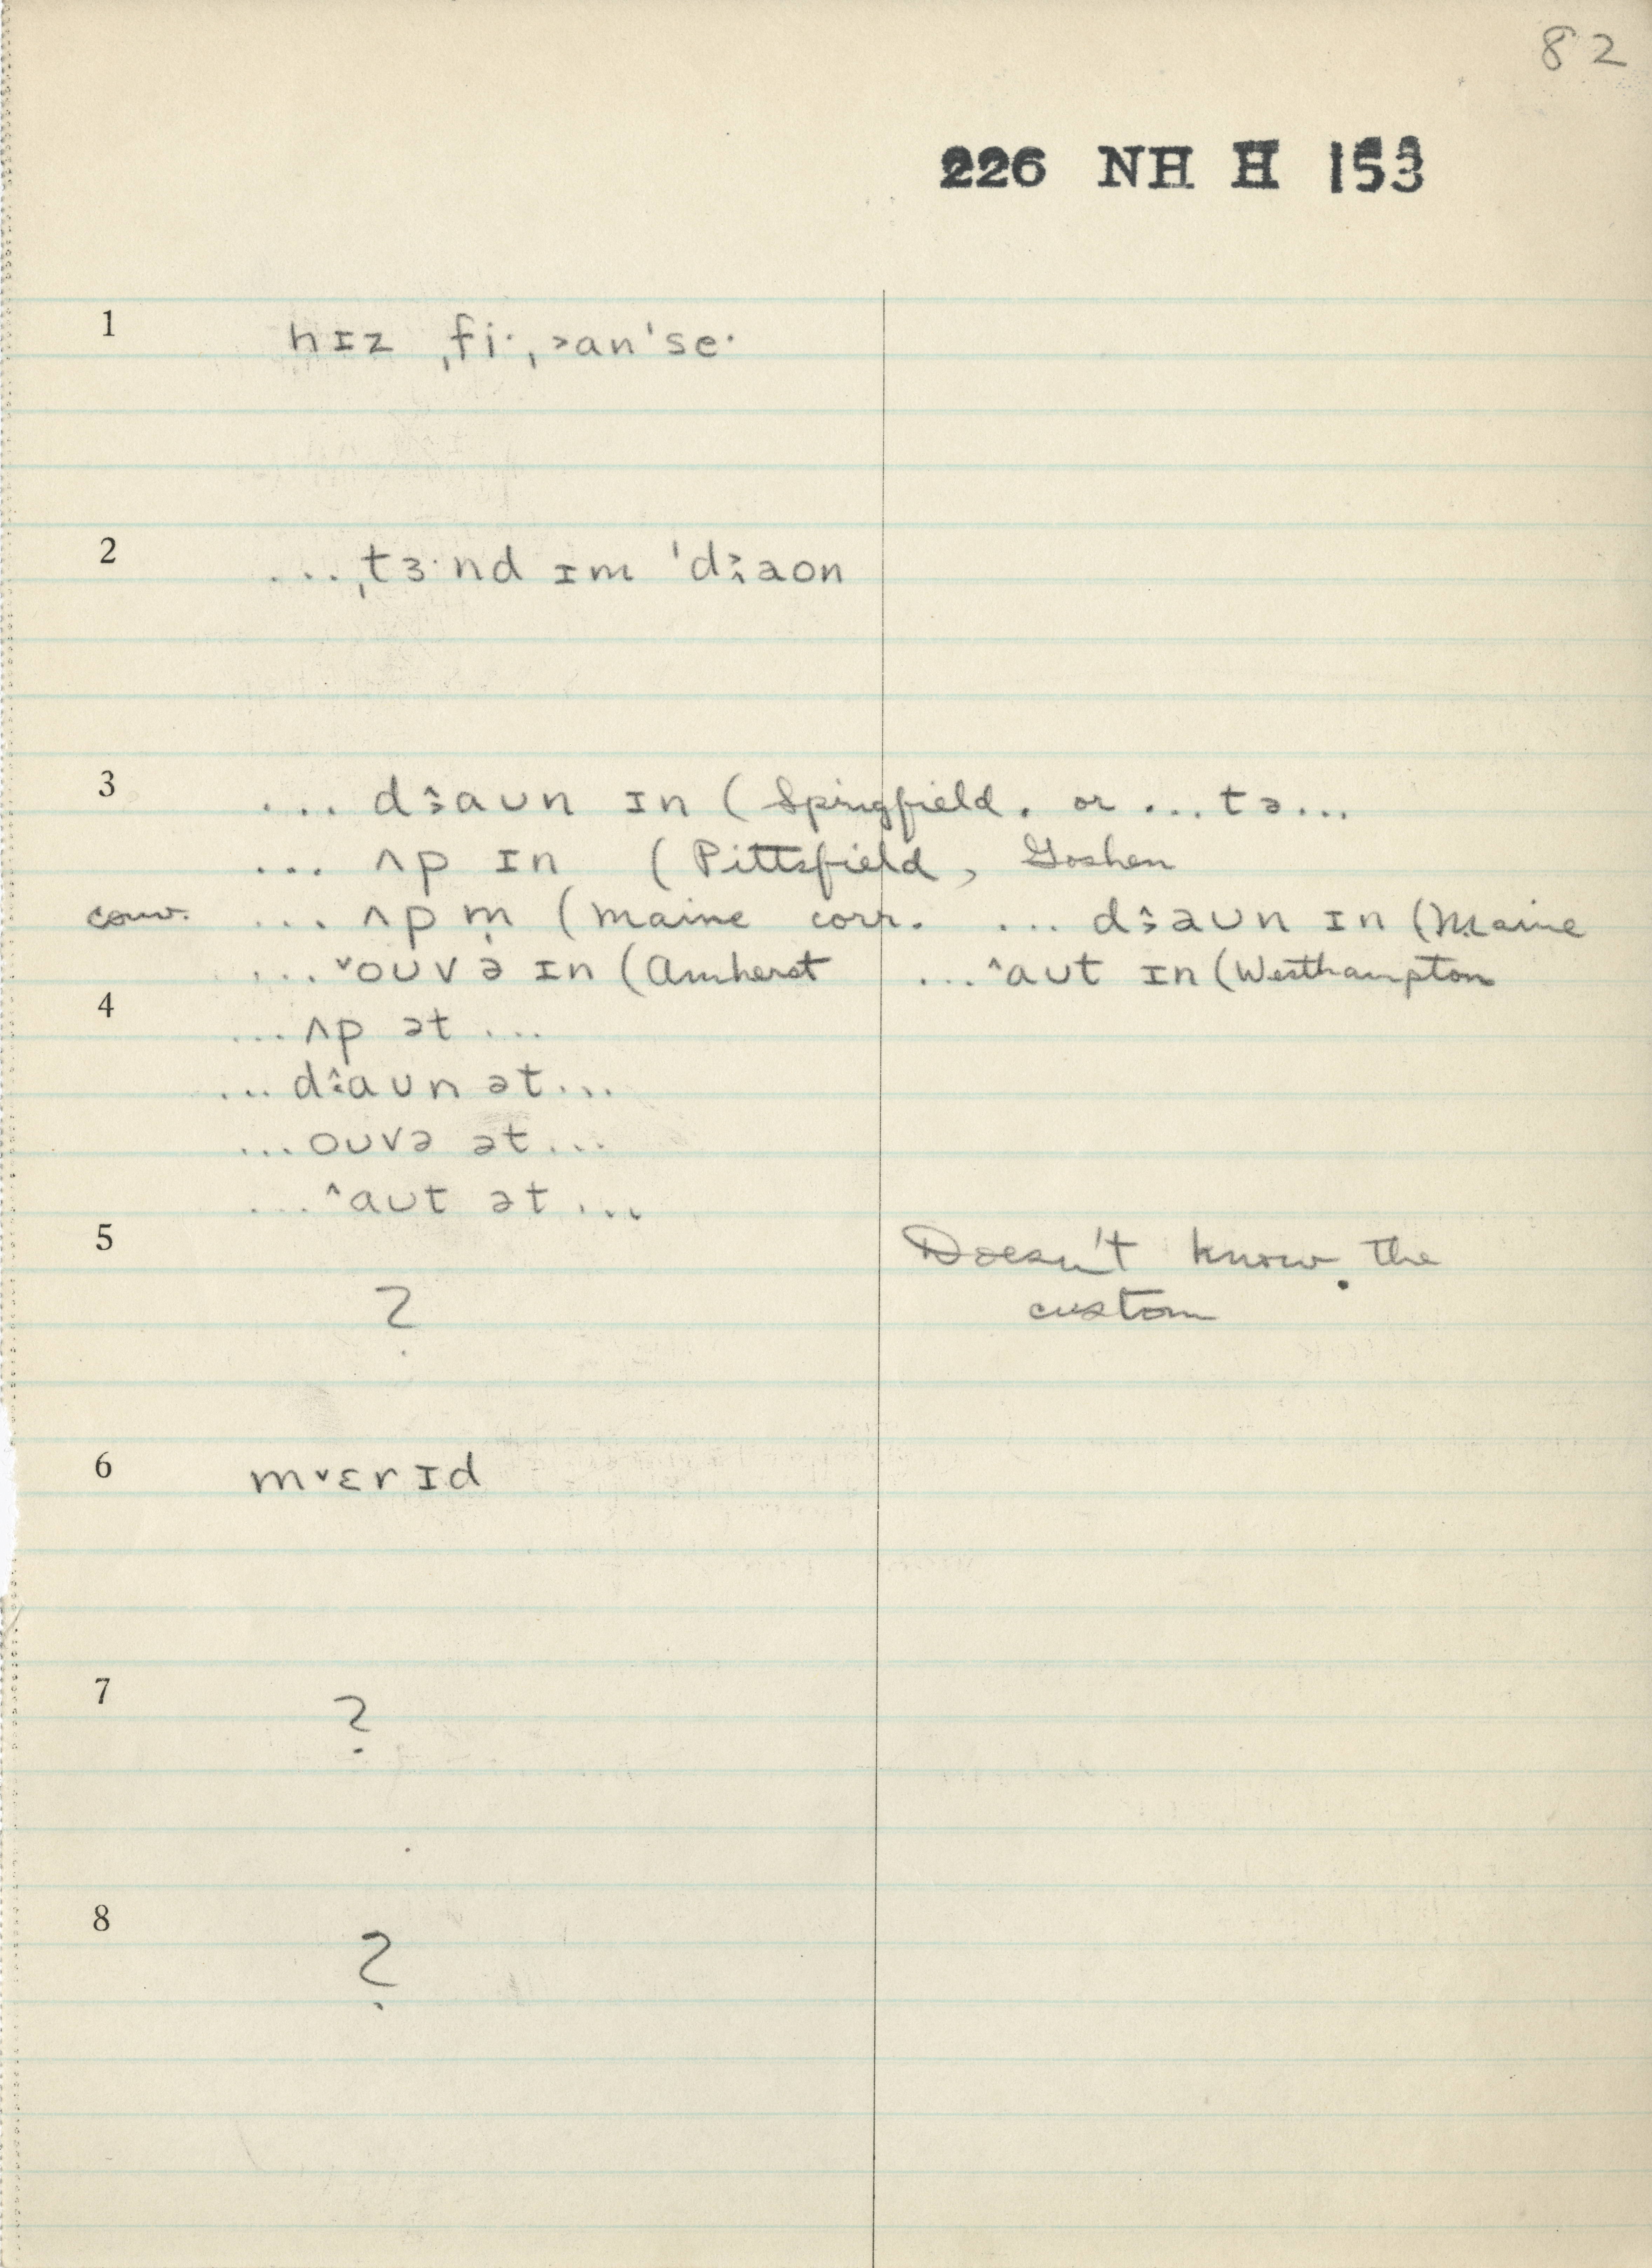 82
226 NH H 153
1 hɪz ˌfi·ˌ˃an'se·
2 ...ˌtɜ·nd ɪm 'daon
3 ... daʊn ɪn (Springfield. or ... tə...
... ʌp ɪn (Pittsfield, Goshen
conv. ... ʌp m̩ (Maine corr. ... daʊn ɪn (Maine
... ˅oʊvə ɪn (Amherst ... ˄aʊt ɪn (Westhampton
4 ... ʌp ət ...
... daʊn ət ...
... oʊvə ət ...
... ˄aʊt ət ...
5 Doesn't know the
? custom
6 m˅ɛrɪd
7 ?
8 ?